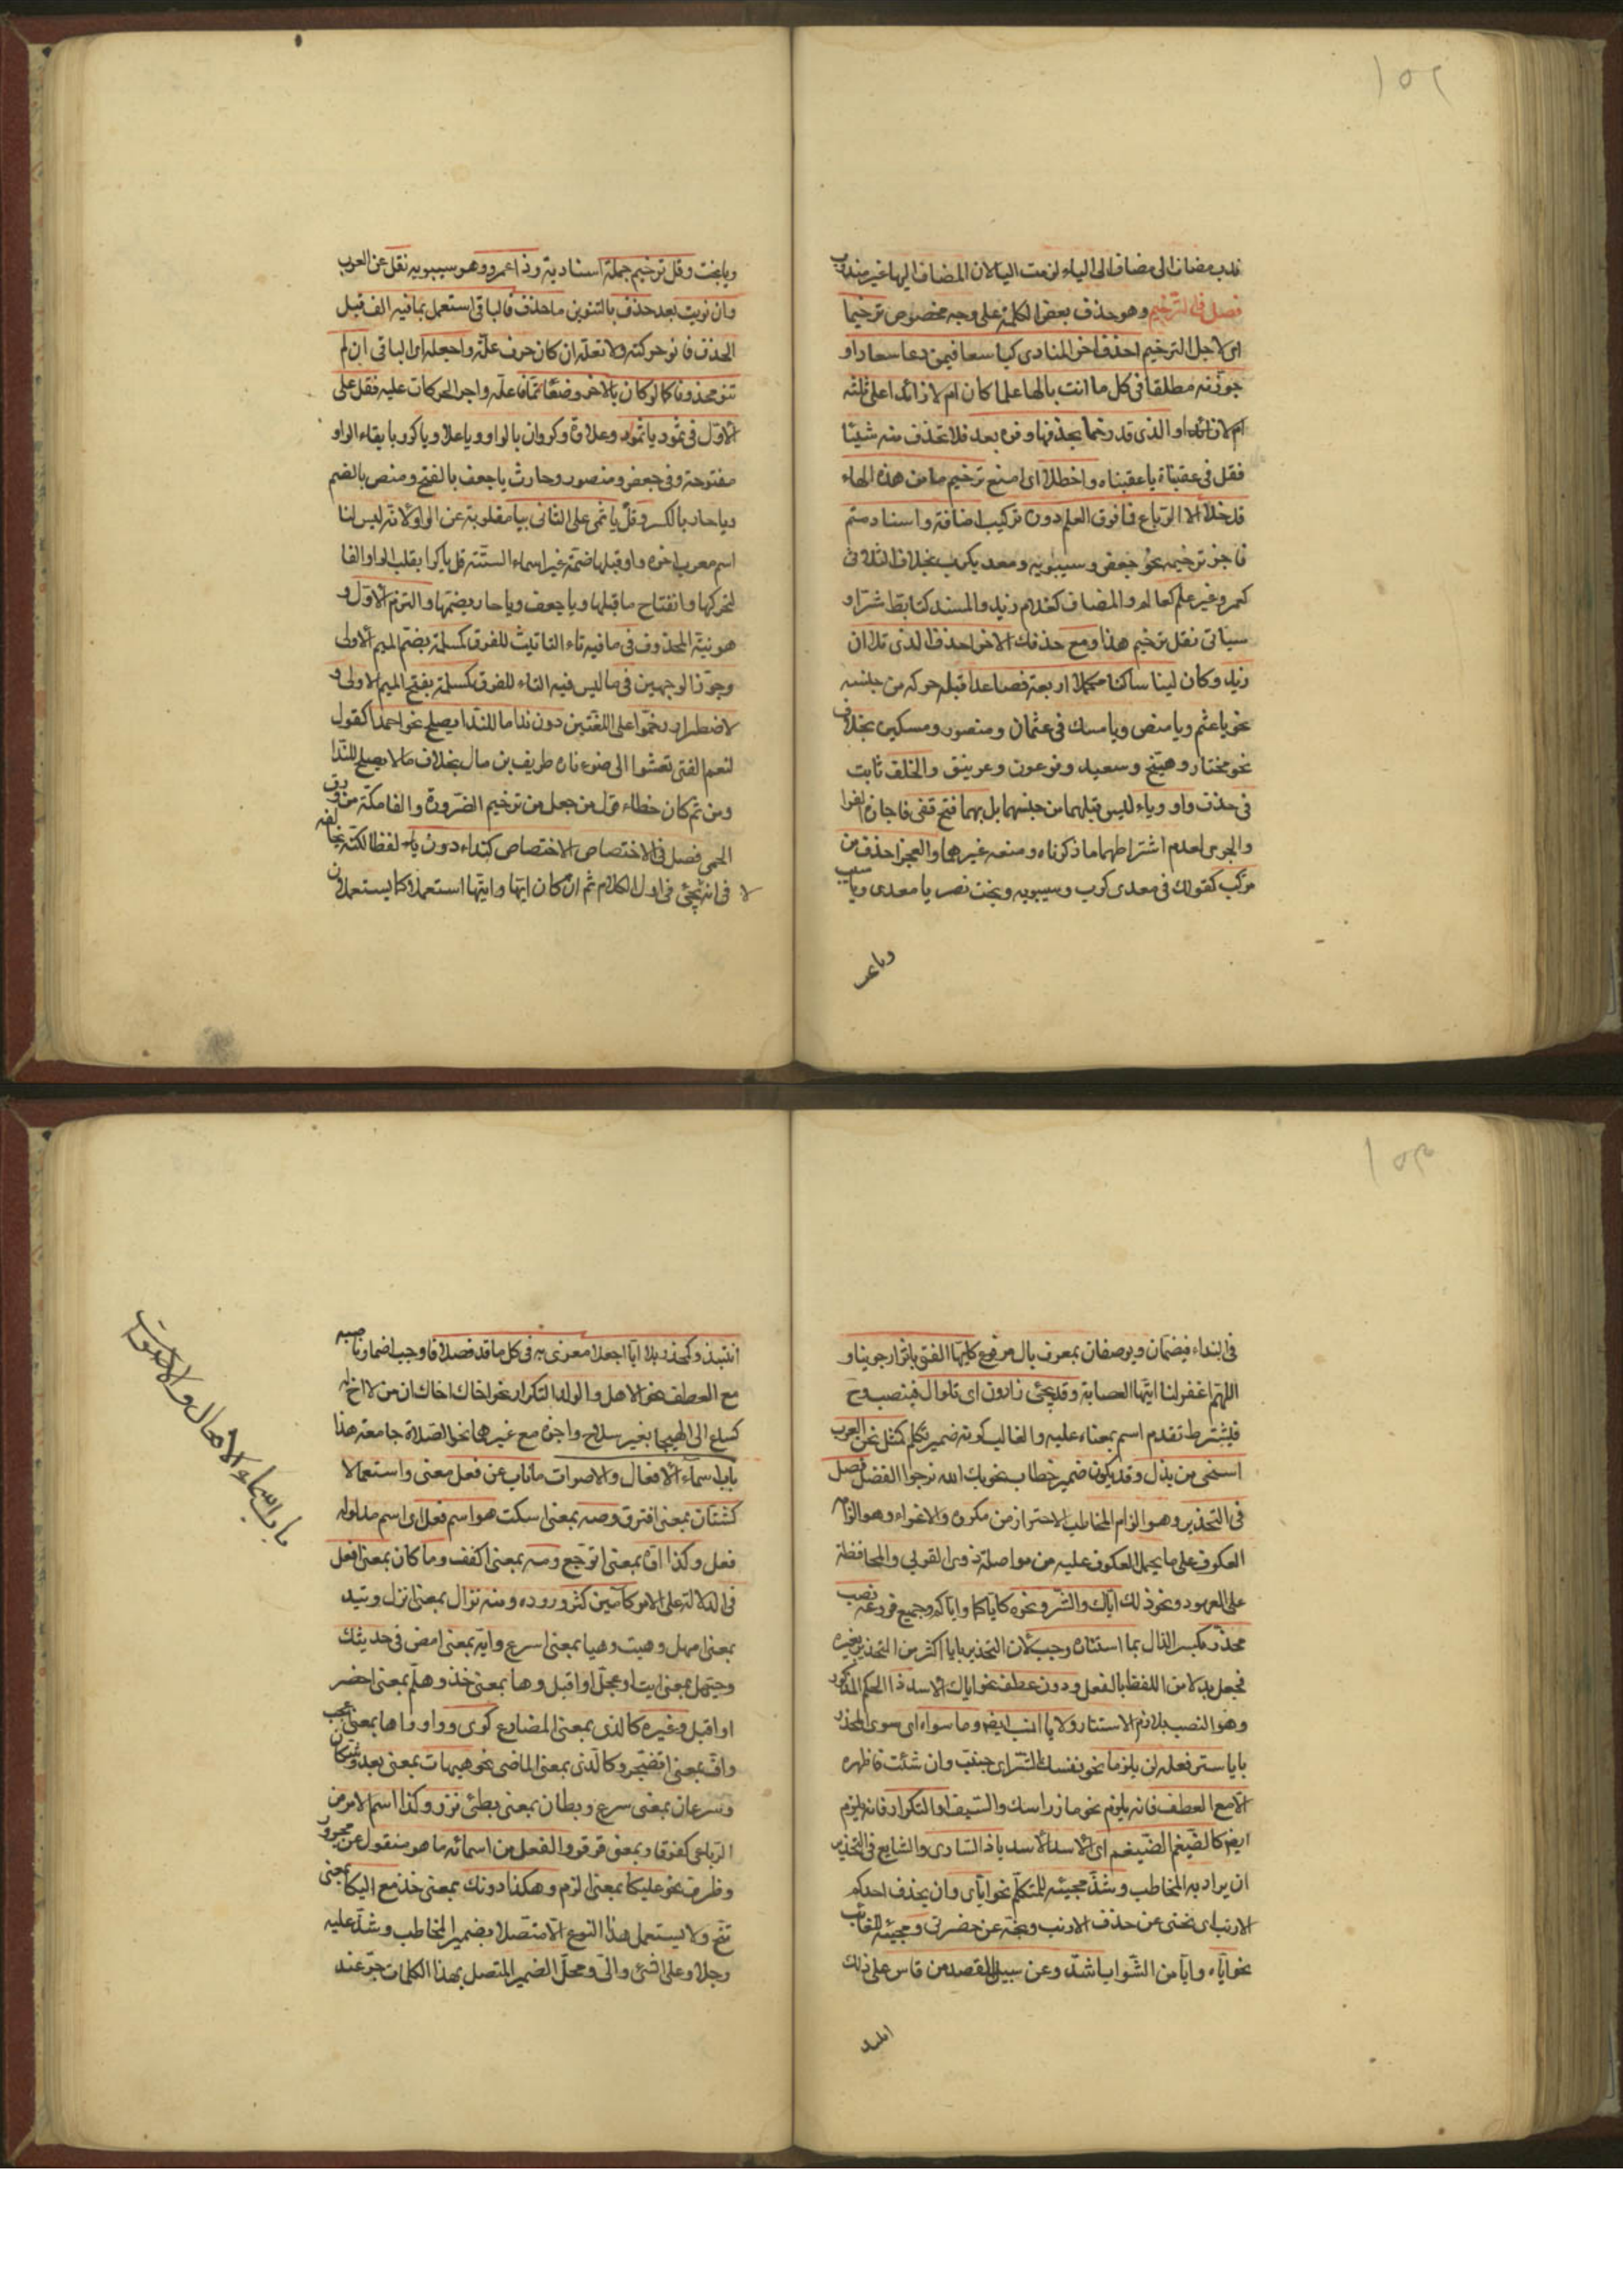 ١٥٢
ندب مضاف الى مضاف الى الياء لزمت اليا لان المضاف اليها غير مندوب
فصل فى الترخيم وهو حذف بعض الكلمة على وجه مخصوص ترخيما
اى لاجل الترخيم احذف اخر المنادى كيا سعا فيمن دعا سعادا و
جوزنه مطلقا فى كل ما انث بالها علما كان ام لا زائدا على ثلثه
ام لا زائد او الذى قد رخما بحذفها وفره بعد فلا تحذف منه شيئا
فقل فى عقبناة يا عقبناه واحظلا اى امنع ترخيم ما من هذه الهاء
قد خلا الا الرباعى فما فوق العلم دون تركيب اضافة واسناد متم
فاجز ترخيمه نحو جعفر وسيبويه ومعد يكرب بخلاف الثلاثى
كعمر وغير علم كعالم والمضاف كغلام زيد والمسند كتابط شرا و
سياتى نقل ترخيم هذا ومع حذفك الاخر احذف الذى تلا ان
زيد وكان لينا ساكنا مكملا اربعة فصاعدا قبله حركه من جنسه
نحو يا عثم ويا منص ويا مسك فى عثمان ومنصور ومسكين بخلاف
نحو مختار وهبيخ وسعيد وفرعون وغرنيق والخلف ثابت
فى حذف واو وياء ليس قبلهما من جنسهما بل بهما فتح قفى فاجازه الفرا
والجرمى لعدم اشتراطهما ما ذكرناه ومنعه غيرهما والعجز احذف من
مركب كقولك فى معدى كرب وسيبويه وبخت نصر يا معدى ويا سيب
ويا عمر
ويا بخت وقل ترخيم جملة اسنادية وذا عمرو وهو سيبويه نقل عن العرب
وان نويت بعد حذف بالتنوين ما حذف فالباقى استعمل بما فيه الف قبل
الحذف فا نو حركته ولا تعله ان كان حرف علة واجعله اى الباقى ان لم
تنو محذوفا كما لو كان بالاخر وضعا تمما فاعله واجر الحركات عليه فقل على
الاول فى ثمود يا ثمو وعلاوة وكروان بالواو ويا علاو ويا كرو با بقاء الواو
مفتوحة وفى جعفر ومنصور وحارث يا جعف بالفتح ومنص بالضم
ويا حار بالكسر وقل يا ثمى على الثانى بيا مقلوبة عن الواو لانه ليس لنا
اسم معرب اخره واو قبلها ضمة غير اسماء الستته قل يا كرا بقلب الواو الفا
لتحركها وانفتاح ما قبلها ويا جعف ويا حار بضمها والتزم الاول و
هو نية المحذوف فى ما فيه تاء التانيث للفرق كمسلمة بضم الميم الاولى
وجوز الوجهين فى ما ليس فيه التاء للفرق كمسلمة بفتح الميم الاولى و
لاضطرار رخموا على اللغتين دون ندا ما للندا يصلح نحو احمدا كقول
لنعم الفتى تعشوا الى ضوء ناره طريف بن مال بخلاف ما لا يصلح للندا
ومن ثم كان خطاء قول من جعل من ترخيم الضرورة والفا مكة من ورق
الحمى فصل فى الاختصاص الاختصاص كنداء دون ياء لفظا لكنه يخالفه
فى انه لا يجئ فى اول الكلام ثم ان كان ايها وايتها استعملا كما يستعملان
١٥٣
فى النداء فيضمان ويوصفان بمعرف بال مرفوع كايها الفتى باثر ارجونيا و
اللهم اغفر لنا ايتها العصابة وقد يجئ ذا دون اى تلو ال فينصب وح
فيشترط تقدم اسم بمعناه عليه والغالب كونه ضمير تكلم كمثل نحن العرب
اسخى من بذل وقد يكون ضمير خطاب نحو بك الله نرجوا الفضل فصل
فى التحذير وهو الزام المخاطب الاحتراز من مكروه والاغراء وهو الزام
العكوف على ما يحمل العكوف عليه من مواصلة ذوى القربى والمحافظة
على العهود ونحو ذلك اياك والشر ونحوه كاياكما واياكم وجميع فروعه نصب
محذر بكسر الذال بما استتاره وجب لان التحذير بايا اكثر من التحذير بغيره
فجعل بدلا من اللفظ بالفعل ودون عطف نحو اياك الاسد ذا الحكم المذكور
وهو النصب بلازم الاستتار ولايا انسب ايضا وما سواه اى سوى المحذر
بايا ستر فعله لن يلزما نحو نفسك الشر اى جنب وان شئت فاظهره
الا مع العطف فانه يلزم نحو ماز راسك والسيف او التكرار فانه يلزم
ايضا كالضيغم الضيغم اى الاسد الاسد ياذا السارى والشايع فى التحذير
ان يراد به المخاطب وشذ مجيئه للمتكلم نحو اياى وان يحذف احدكم
الارنب اى نحنى عن حذف الارنب ونحه عن حضرتى ومجيئه للغائب
نحو اياه وايا من الشواب اشذ وعن سبيل القصد من قاس على ذلك
انتبذ
انتبذ وكمحذر بلا ايا اجعلا مغرى به فى كل ما قد فصلا فاوجب اضمار ناصبه
مع العطف نحو الاهل والولد التكرار نحو اخاك اخاك ان من لا اخ له
كساع الى الهيجا بغير سلاح واجزه مع غيرهما نحو الصلاة جامعة هذا
باب اسماء الافعال والاصوات ما ناب عن فعل معنى واستعمالا
كشتان بمعنى افترق وصه بمعنى اسكت هو اسم فعل اى اسم مدلوله
فعل وكذا اوه بمعنى اتوجع ومه بمعنى اكفف وما كان بمعنى افعل
فى الدلالة على الامر كآمين كثر وروده ومنه نزال بمعنى انزل وتيد
بمعنى امهل وهيت وهيا بمعنى اسرع وايه بمعنى امض فى حديثك
وحيهل بمعنى ايت او عجل او اقبل وها بمعنى خذ وهلم بمعنى احضر
او اقبل وغيره كالذى بمعنى المضارع كوى وواو واها بمعنى اعجب
واف بمعنى اتضجر وكالذى بمعنى الماضى نحو هيهات بمعنى بعد وشكان
وسرعان بمعنى سرع وبطان بمعنى بطئ نزر وكذا اسم الامر من
الرباعى كقرقار بمعنى قرقر والفعل من اسمائه ما هو منقول عن مجرور
وظرف نحو عليكا بمعنى الزم وهكذا دونك بمعنى خذ مع اليكا بمعنى
تنح ولا يستعمل هذا النوع الا متصلا بضمير المخاطب وشذ عليه
رجلا وعلى الشئ والى ومحل الضمير المتصل بهذا الكلمات جر عند
باب اسماء الافعال والاصوات